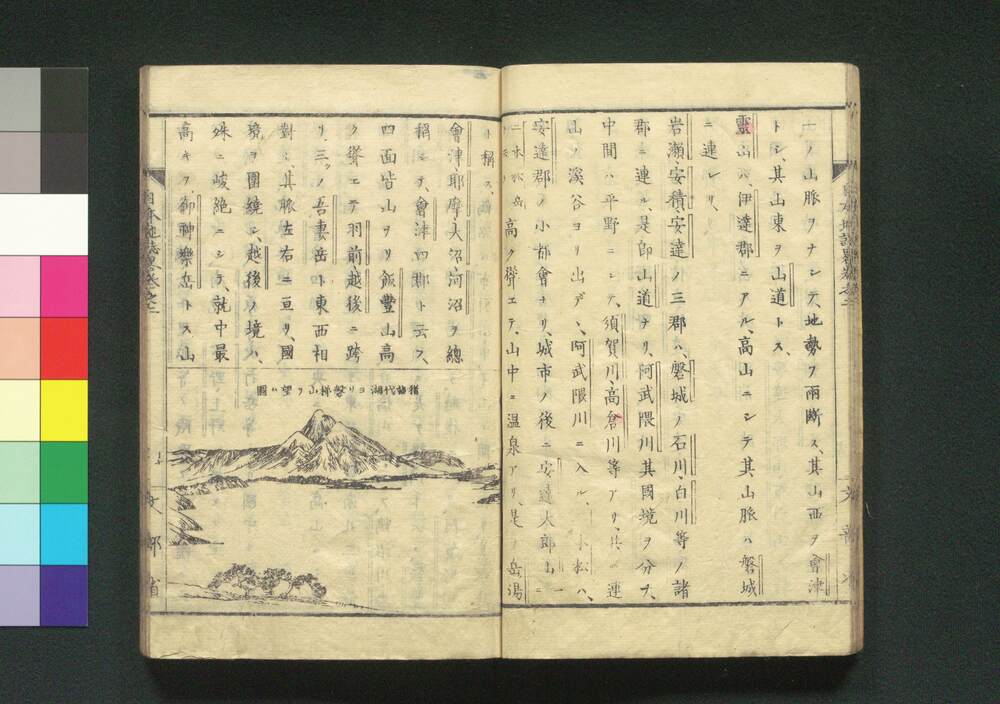 ノ山脈ヲナシテ、地勢ヲ兩斷ス、其山西ヲ會津
トシ、其山東ヲ山道トス、
靈山ハ、伊達郡ニアル、高山ニシテ其山脈ハ磐城
ニ連レリ、
岩瀬、安積、安達ノ三郡ハ、磐城ノ石川、白川等ノ諸
郡ニ連ル、是卽山道ナリ、阿武隈川其國境ヲ分ツ、
中間ハ平野ニシテ、須賀川、高倉川等アリ、共ニ連
山ノ溪谷ヨリ出デ、阿武隈川ニ入ル、二本松ハ、
安達郡ノ小都會ナリ、城市ノ後ニ安達太郎山一
ニ 高ク聳エテ、山中ニ温泉アリ、是ヲ岳湯
ト稱ス、
會津、耶摩、大沼、河沼ヲ總
稱シテ、會津四郡ト云ス、
四面皆山ヲリ飯豐山高
ク聳エテ羽前越後ニ跨
リ、三ツノ吾妻岳ト東西相
對シ其脈左右ニ亘リ、國
境ヲ圍繞シ、越後ノ境ハ、
殊ニ峻絶ニシテ、就中最
高キヲ、御神樂岳トス山
猪苗代湖ヨリ磐梯山ヲ望ム圖
日本地誌略卷之二
文部省